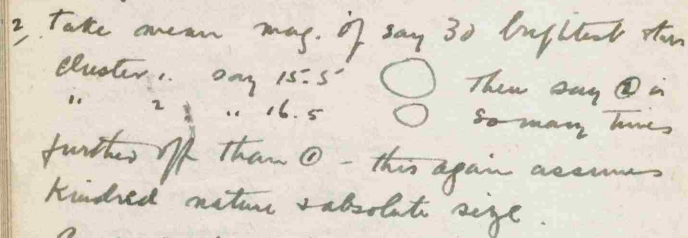 2, Take mean mag. of say 30 brightest stars
Cluster 1. say 15.5 Then say ② is
" 2 " 16.5 so many times
further off than ① - this again assumes
Kindred nature & absolute size.